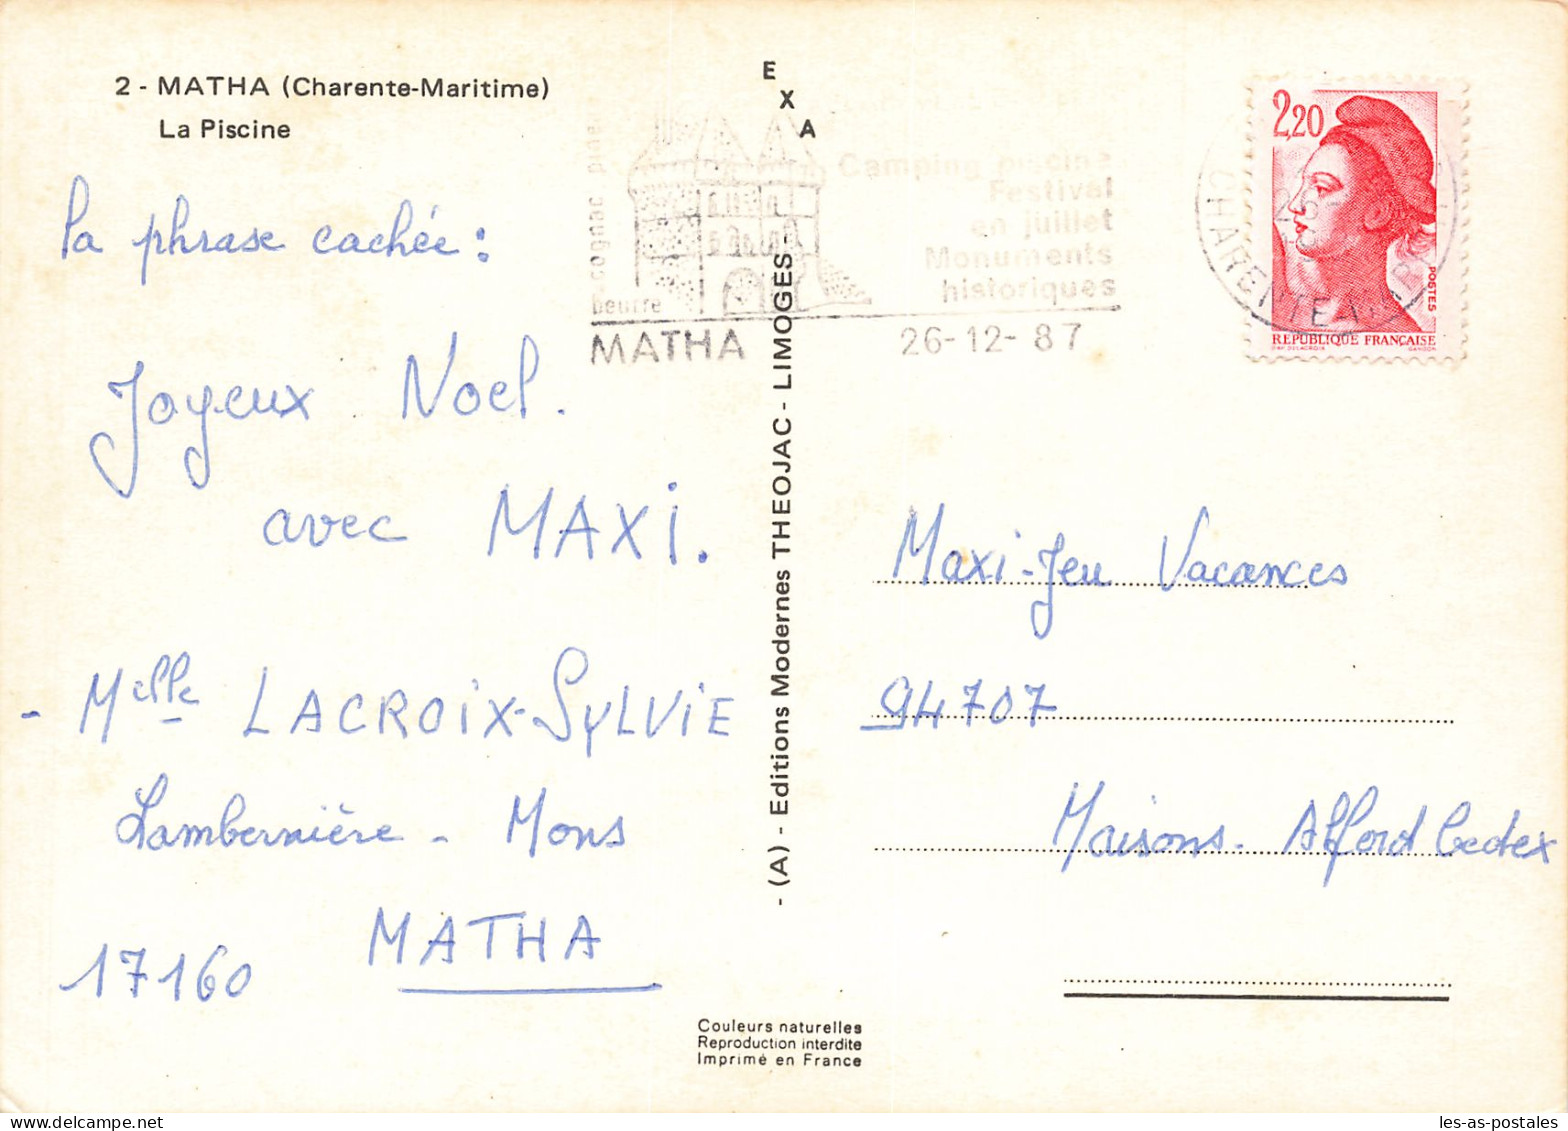 2 - MATHA (Charente-Maritime)
La Piscine
la phrase cachée :
Joyeux Noel.
avec MAXi.
- Melle LACROiX-SYLViE
Lambernière - Mons
17160 MATHA
EXA
- (A) - Editions Modernes THEOJAC - LIMOGES -
Couleurs naturelles
Reproduction interdite
Imprimé en France
cognac
beurre
Camping piscine
Festival
en juillet
Monuments
historiques
MATHA 26-12-87
CHARENTE
2,20
POSTES
REPUBLIQUE FRANÇAISE
D'AP DELACROIX GANDON
Maxi-Jeu Vacances
94707
Maisons-Alford Cedex
les-as-postales